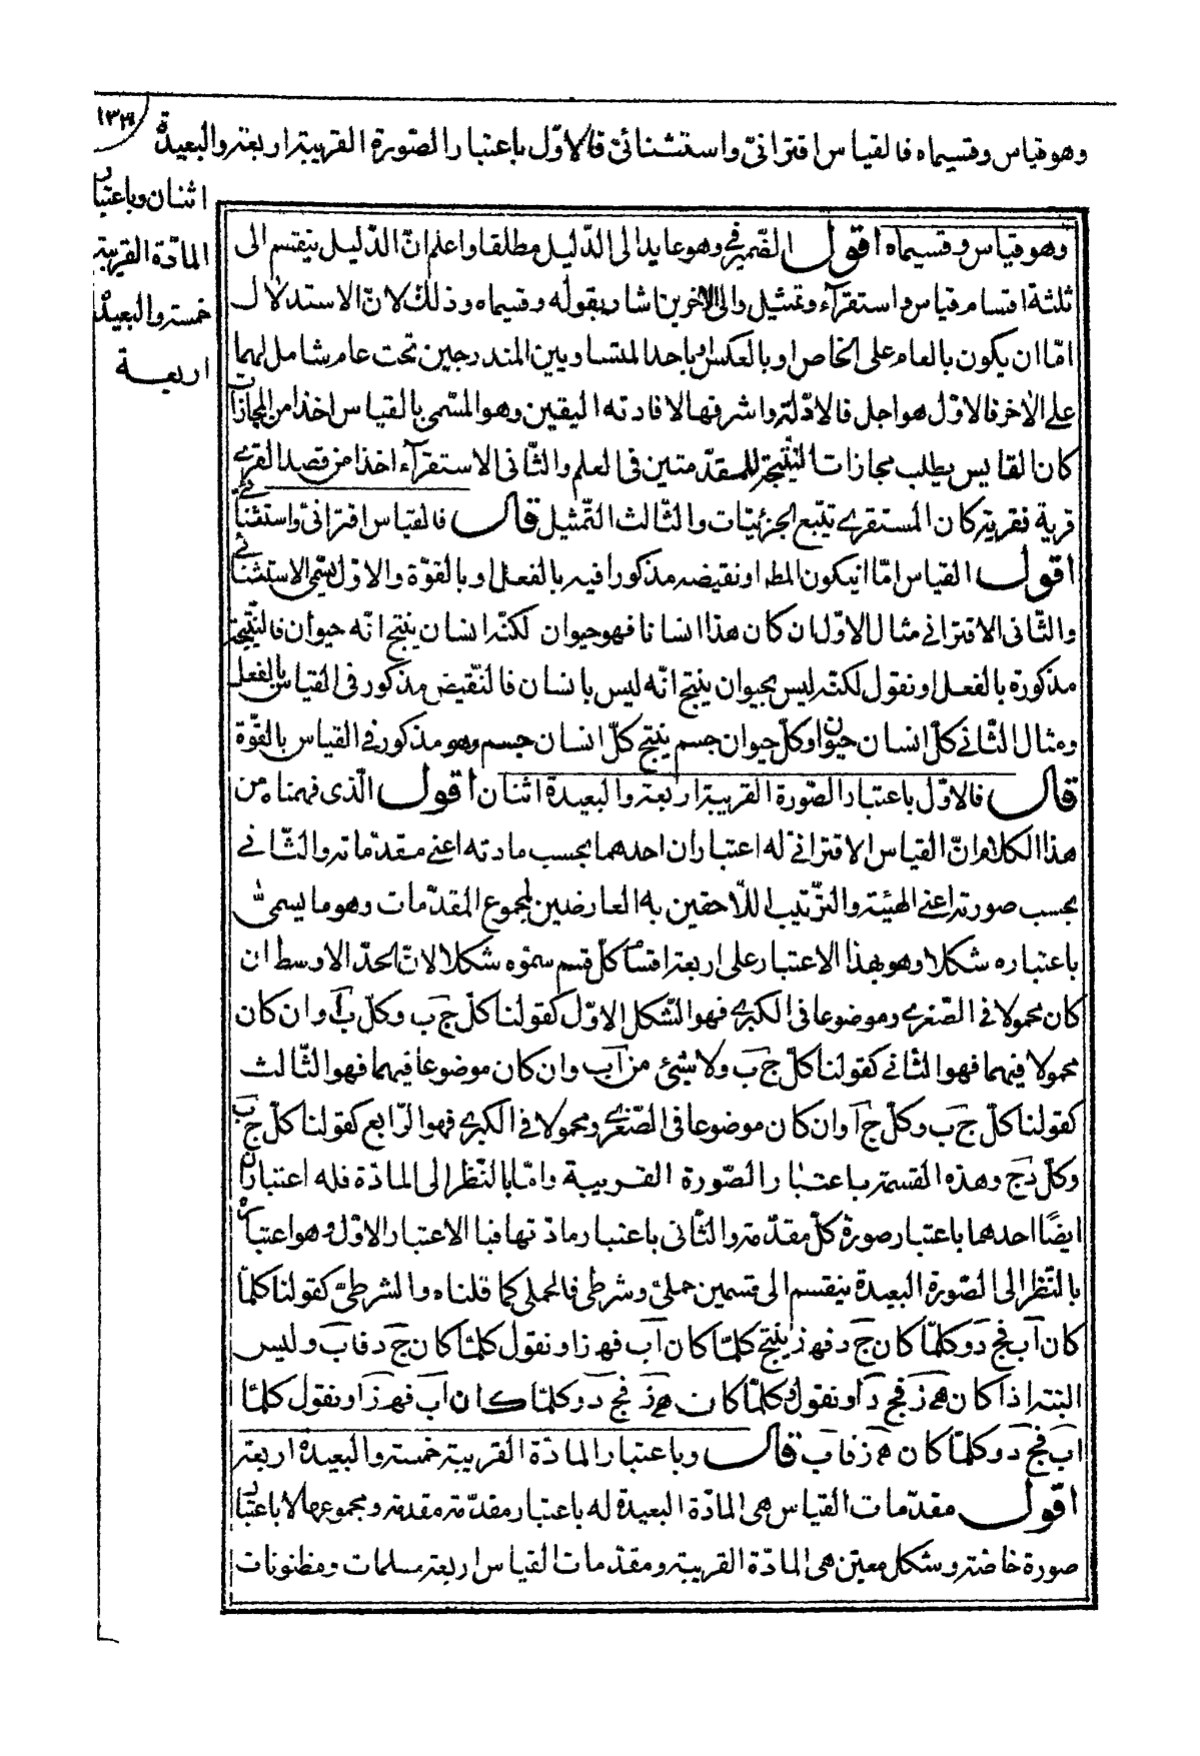 ١٣٩
وهو قياس وقسيماه فالقياس اقترانىّ واستثنائىّ فالاوّل باعتبار الصّورة القريبة اربعة والبعيدة
اثنان وباعتبار
المادّة القريبة
خمسة والبعيدة
اربعـــة
وهو قياس وقسيماه اقول الضّمير في وهو عايد الى الدّليل مطلقا واعلم انّ الدّليل ينقسم الى
ثلثة اقسام قياس واستقرآء وتمثيل والى الاخرين اشار بقوله وقسيماه وذلك لانّ الاستدلال
امّا ان يكون بالعام على الخاص او بالعكس او باحد المتساويين المندرجين تحت عام شامل لهما
على الاخر فالاوّل هو اجل فالادلّة واشرفها لافادته اليقين وهو المسّمى بالقياس اخذا من المجازات
كان القايس يطلب مجازات النّتيجة للمقدّمتين فى العلم والثّانى الاستقرآء اخذا من قصد القرى
قرية فقرية كان المستقرى يتتبع الجزئيّات والثّالث التّمثيل قال فالقياس اقترانىّ واستثنائىّ
اقول القياس امّا انيكون المط او نقيضه مذكورا فيه بالفعل او بالقوّة والاوّل يسّمى الاستثنائى
والثّانى الاقترانى مثال الاوّل ان كان هذا انسانا فهو حيوان لكنّه انسان ينتج انّه حيوان فالنّتيجة
مذكورة بالفعل او نقول لكنّه ليس بحيوان ينتج انّه ليس بانسان فالنّقيض مذكور فى القياس بالفعل
ومثال الثّانى كلّ انسان حيوان وكلّ حيوان جسم ينتج كلّ انسان جسم وهو مذكور فى القياس بالقوّة
قال فالاوّل باعتبار الصّورة القريبة اربعة والبعيدة اثنان اقول الّذى فهمناه من
هذا الكلام انّ القياس الاقترانى له اعتباران احدهما بحسب مادته اعنى مقدّماته والثّانى
بحسب صورته اعنى الهيئة والتّرتيب اللّاحقين به العارضين لمجموع المقدّمات وهو ما يسمى
باعتباره شكلا وهو بهذا الاعتبار على اربعة اقسام كلّ قسم سمّوه شكلا لانّ الحدّ الاوسط ان
كان محمولا فى الصّغرى وموضوعا فى الكبرى فهو الشّكل الاوّل كقولنا كلّ ج ب وكلّ ب آ وان كان
محمولا فيهما فهو الثّانى كقولنا كلّ ج ب ولا شىء من آ ب وان كان موضوعا فيهما فهو الثّالث
كقولنا كلّ ج ب وكلّ ج آ وان كان موضوعا فى الصّغرى ومحمولا فى الكبرى فهو الرّابع كقولنا كلّ ج ب
وكلّ د ج وهذه القسمة باعتبار الصّورة القريبة وامّا بالنّظر الى المادّة فله اعتباران
ايضًا احدهما باعتبار صورة كلّ مقدّمة والثّانى باعتبار مادّتها فبالاعتبار الاوّل وهو اعتباره
بالنّظر الى الصّورة البعيدة ينقسم الى قسمين حملىّ وشرطى فالحملى كما قلناه والشرطىّ كقولنا كلّما
كان آب فج د وكلّما كان ج د فه ز ينتج كلّما كان آب فه ز او نقول كلّما كان ج د فاب وليس
البتة اذا كان ه ز فج د او نقول كلّما كان ه ز فج د وكلّما كان آب فه ز او نقول كلّما
اب فج د وكلّما كان ه ز فاب قال وباعتبار المادّة القريبة خمسة والبعيدة اربعة
اقول مقدّمات القياس هى المادّة البعيدة له باعتبار مقدّمة مقدمة ومجموعها لا باعتبار
صورة خاصّة وشكل معيّن هى المادّة القريبة ومقدّمات القياس اربعة مسلمات ومظنونات